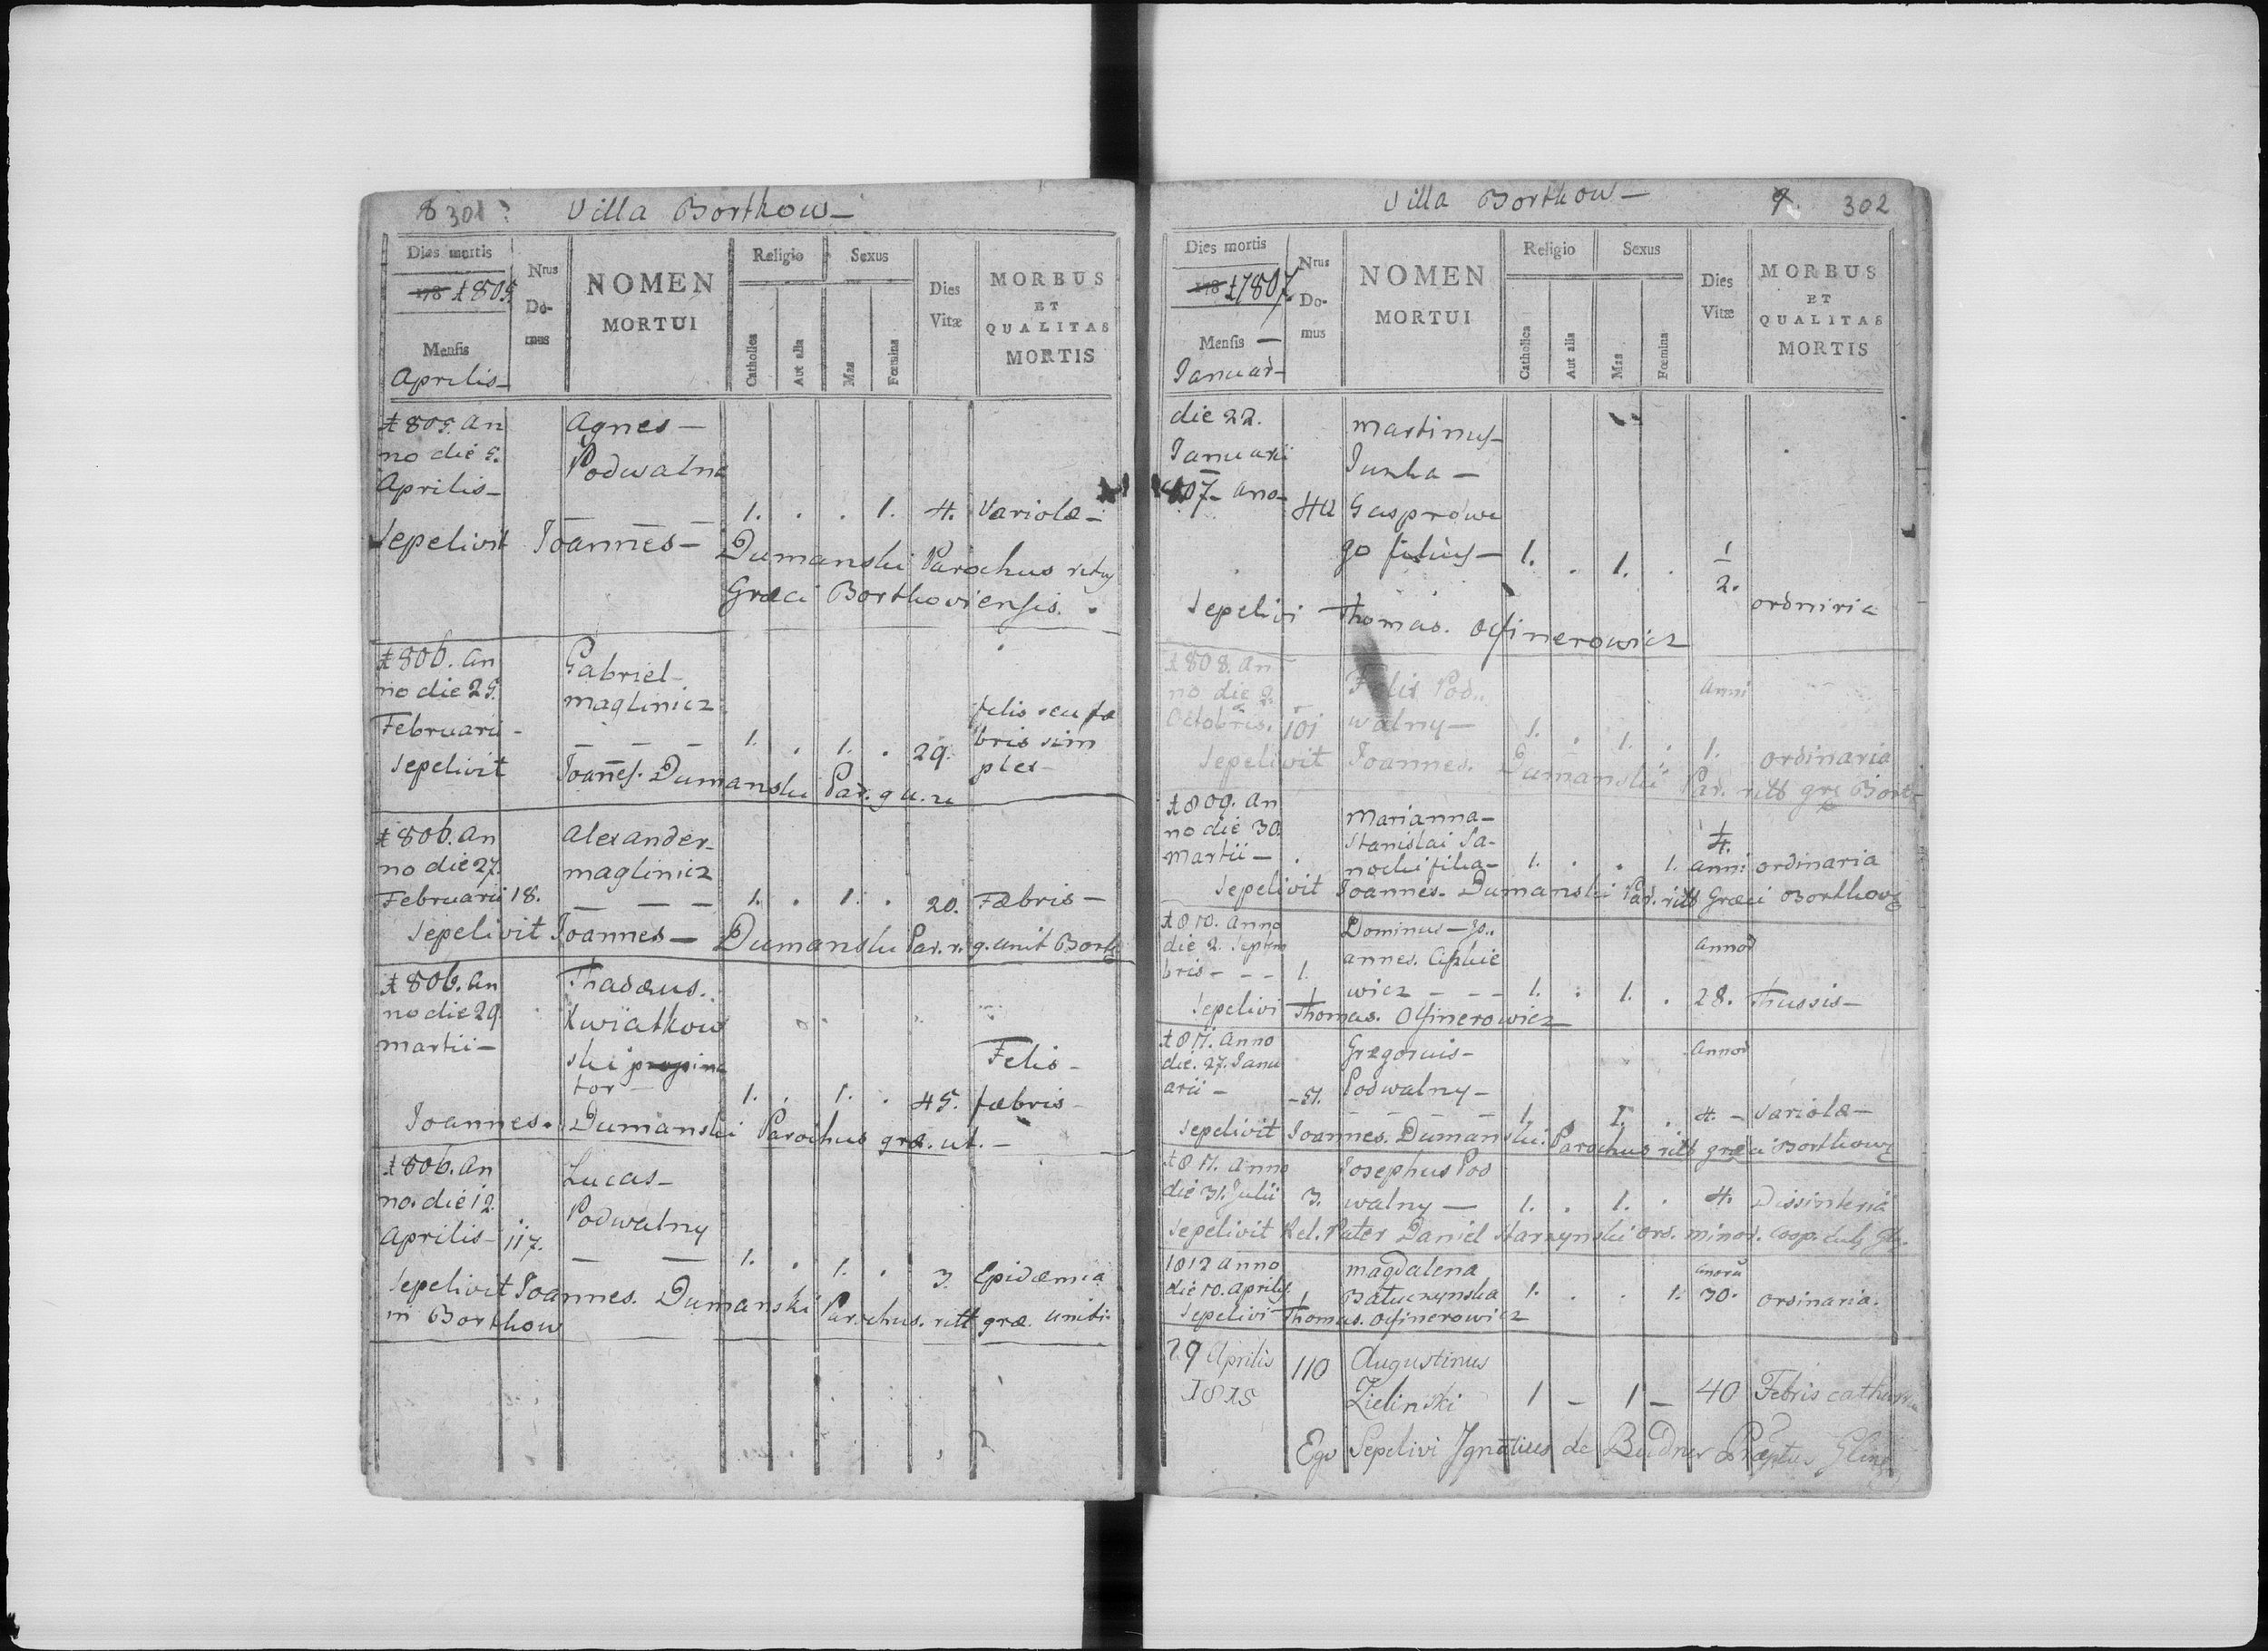 8 301
Villa Borthow
Dies mortis
178 1805
Mensis
Aprilis
Nrus
Do-
mus
NOMEN
MORTUI
Religio
Catholica
Aut alia
Sexus
Mas
Fœmina
Dies
Vitæ
MORBUS
ET
QUALITAS
MORTIS
1805. An
no die 5.
Aprilis
Agnes
Podwalna
1. . . 1. 4. Variolæ
Sepelivit Joannes Dumanski Parochus ritus
Græci Borthoviensis.
1806. An
no die 25.
Februarii
Gabriel
Maglinicz
1. . 1. . 29.
felis seu fæ
bris sim
plex
Sepelivit Joannes. Dumanski Par. g u.
1806. An
no die 27.
Februarii 18.
Alexander
Maglinicz
1. . 1. . 20. Fæbris
Sepelivit Joannes Dumanski Par. r. g. unit Borth
1806. An
no die 29.
Martii
Thadæus.
Kwiatkow
ski propina
tor
1. . 1. . 45.
Felis
fæbris
Joannes. Dumanski Parochus græ. ut.
1806. An
no. die 12.
Aprilis 117.
Lucas
Podwalny
1. . 1. . 3. Epidæmia
Sepelivit Joannes. Dumanski Parochus. ritt græ. uniti.
in Borthow
Villa Borthow
9. 302
Dies mortis
178 1807
Mensis
Januar
Nrus
Do-
mus
NOMEN
MORTUI
Religio
Catholica
Aut alia
Sexus
Mas
Fœmina
Dies
Vitæ
MORBUS
ET
QUALITAS
MORTIS
die 22.
Januarii
807 Ano
Martinus
Junha
Gasprowe
go filius
1. . 1. . 1/2. ordniria
Sepelivi Thomas. Ofinerowicz
1808. An
no die 2.
Octobris. 101
Felis Pod
walny
1. . 1. .
Anni
1. ordinaria
Sepelivit Joannes. Dumanski Par. ritt græ Bort
1809. An
no die 30.
Martii
Marianna
Stanislai Sa-
nocki filia
1. . . 1.
4.
anni ordinaria
Sepelivit Joannes. Dumanski Par. ritt Græci Borthow
1810. Anno
die 2. Septem
bris 1.
Dominus Jo
annes.
wicz 1. . 1. .
annor
28. Thussis
Sepelivi Thomas. Ofinerowicz
1811. Anno
die. 27. Janu
arii 51.
Gregorius
Podwalny
1. . 1. .
Annor
4. Variolæ
Sepelivit Joannes. Dumanski. Parochus ritt græci Borthow
1811. Anno
die 31. Julii 3.
Josephus Pod
walny 1. . 1. . 4. Dissinteria
Sepelivit Rel. Pater Daniel Starzynski ord. minor. coop.
1812 Anno
die 10. Aprilis 1
Magdalena
Batuczynska 1. . . 1.
anorū
30. ordinaria.
Sepelivi Thomas. Ofinerowicz
29 Aprilis
1815
110
Augustinus
Zielinski 1 - 1 - 40 Febris
Ego Sepelivi Ignatius de Budner